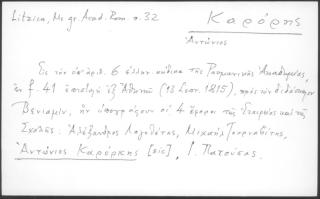 Litzica, Ms. gr. Acad. Rom. σ. 32
Καρόρης
Ἀντώνιος
Εἰς τὸν ὑπ' ἀριθ. 6 ἑλλην. κώδικα τῆς Ρουμανικῆς Ἀκαδημίας,
ἐν f. 41 ἐπιστολὴ ἐξ Ἀθηνῶν (18 Σεπτ. 1815), πρὸς τὸν διδάσκαλον
Βενιαμίν, ἣν ὑπογράφουσιν οἱ 4 ἔφοροι τῆς ἑταιρείας καὶ τῆς
Σχολῆς: Ἀλέξανδρος Λογοθέτης, Μιχαὴλ Τουρναβίτης,
Ἀντώνιος Καρόρκης [sic], Ι. Πατούσας.